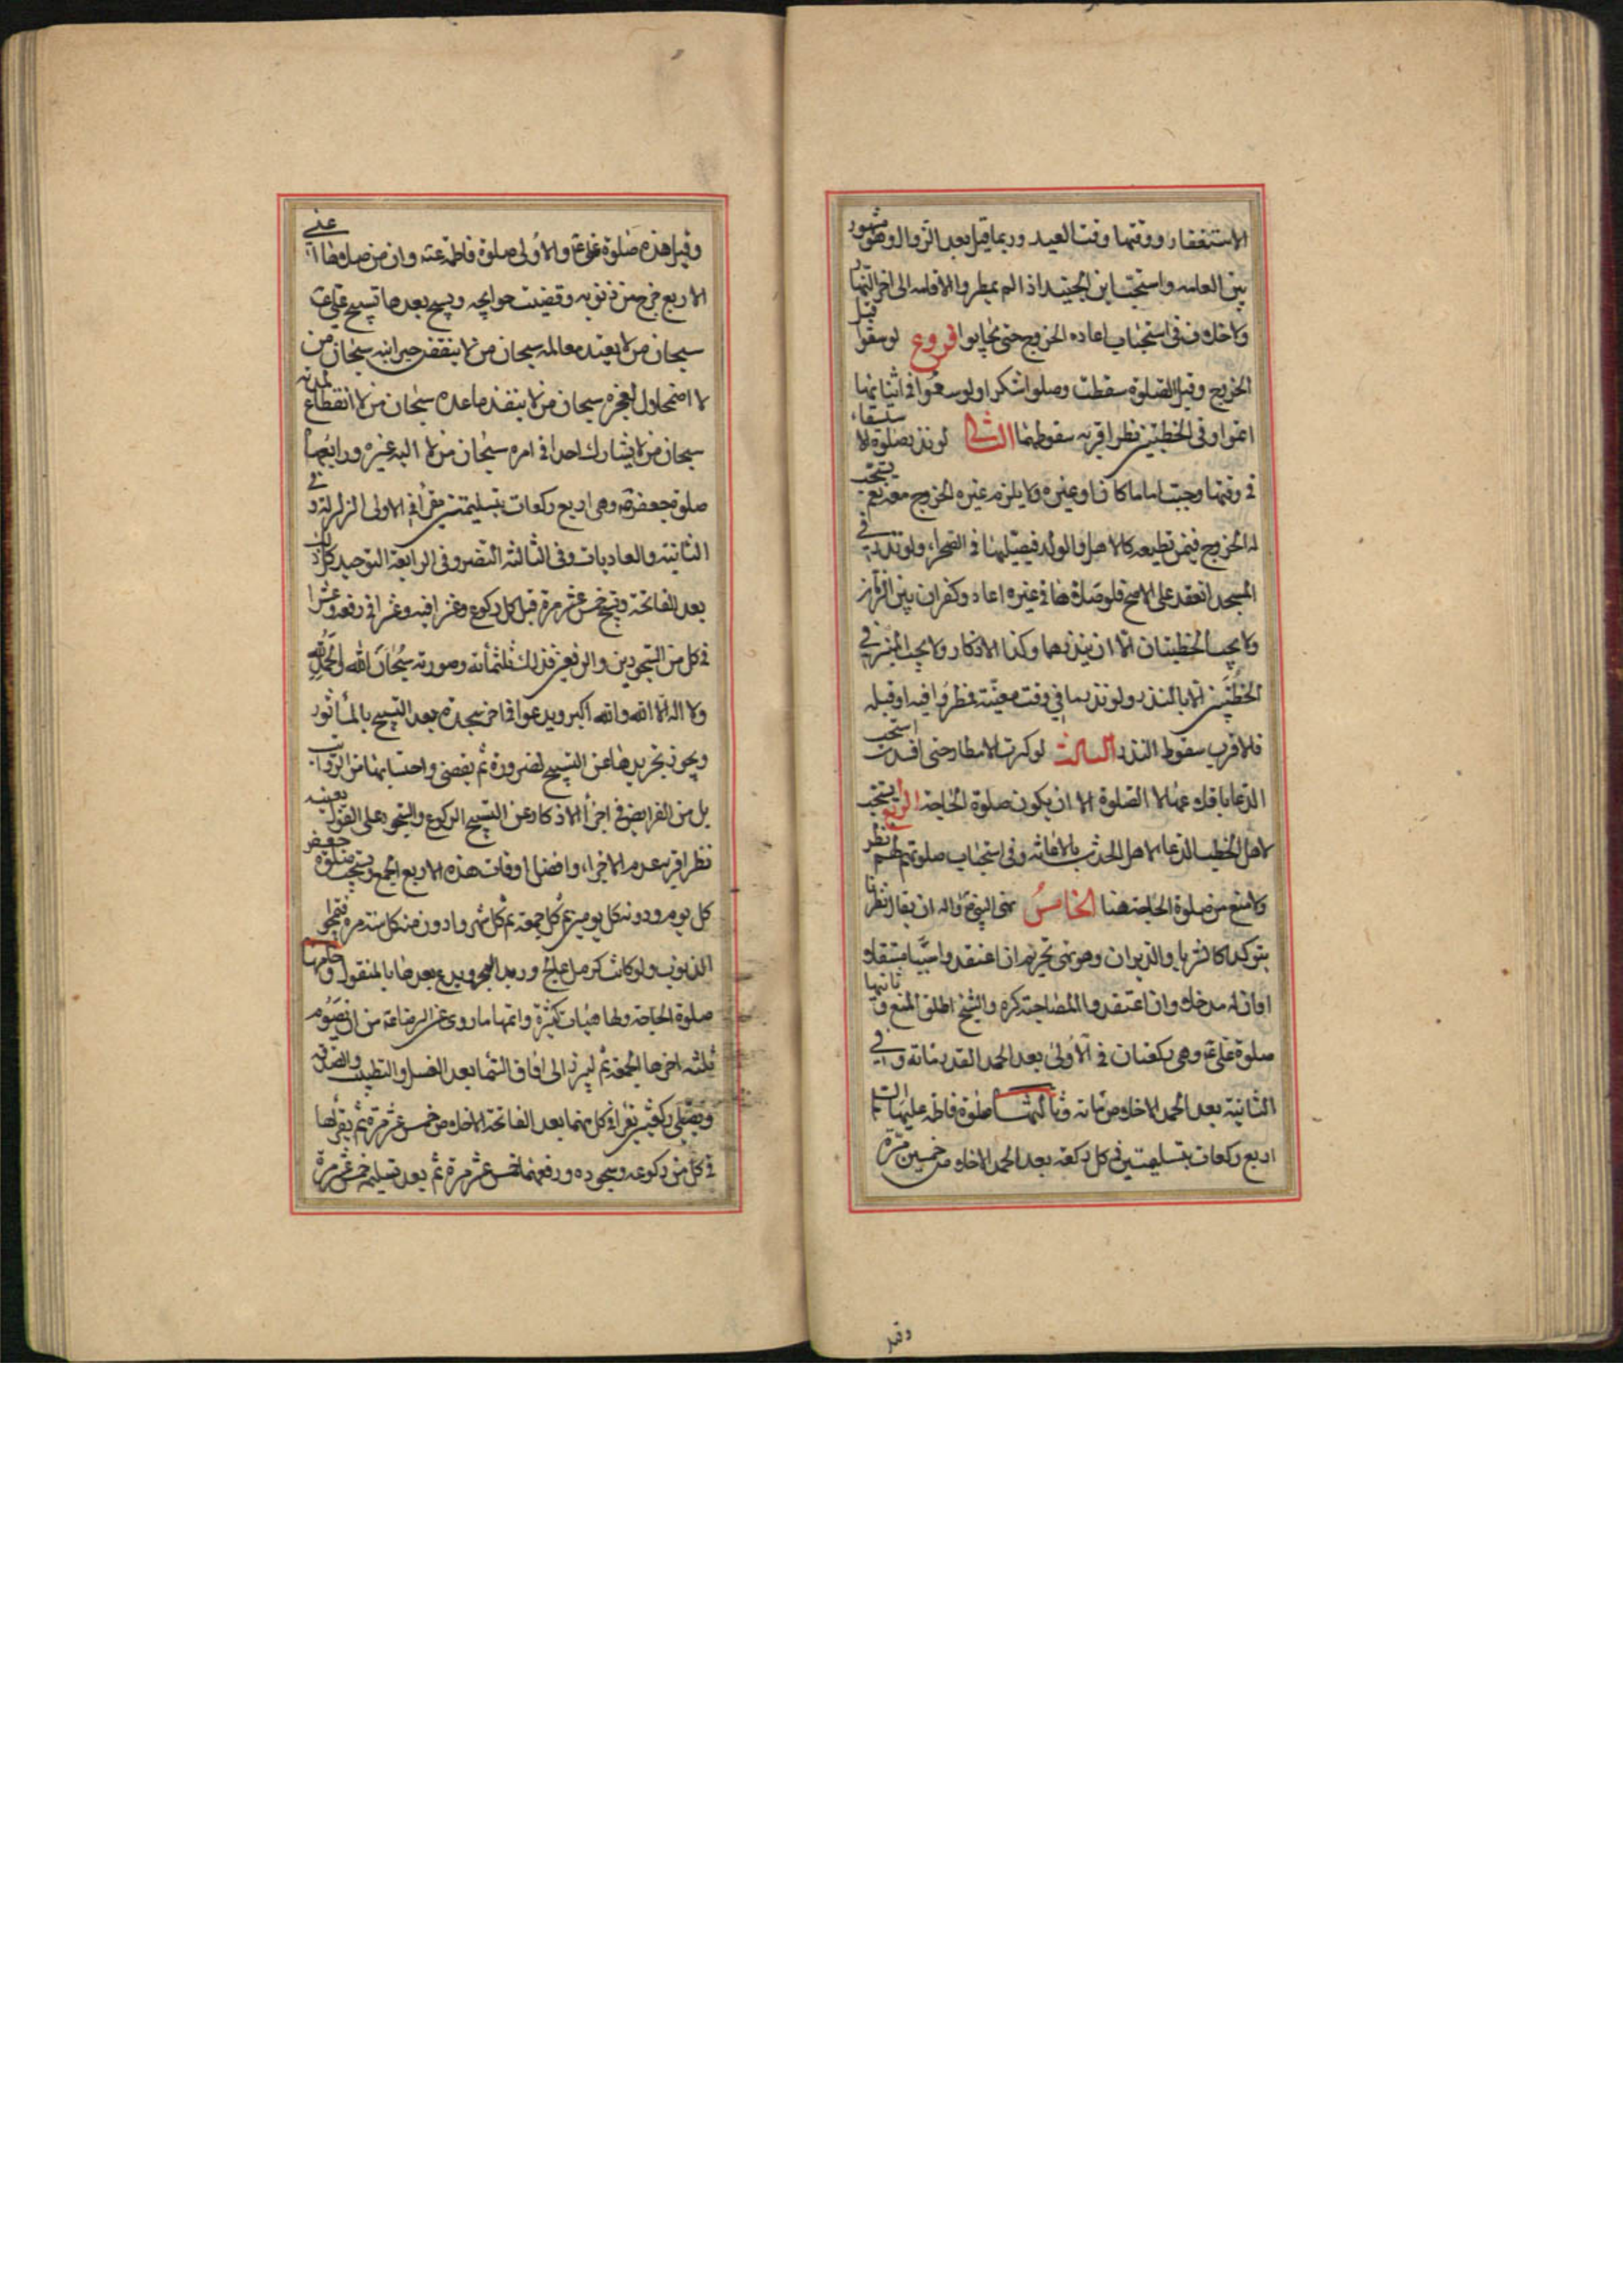 الاستغفار ووقتها وقت العيد وربما قيل بعد الزوال وهو مشهور
بين العامه واستحب ابن الجنيد اذا لم يمطروا الاقامه الى اخر النهار
ولا خلاف فى استحباب اعاده الخروج حتى يجابوا فروع لو سقوا قبل
الخروج وقبل الصلوة سقطت وصلوا شكرا ولو سقوا فى اثنائها
اتموا وفى الخطبتين نظر اقربه سقوطهما الثانى لو نذر صلوة الاستسقاء
فى وقتها وجبت اماما كان او غيره ولا يلزم غيره الخروج معه نعم يستحب
له الخروج فيمن يطيعه كالاهل والولد فيصليها فى الصحراء ولو نذر فى
المسجد انعقد على الاصح فلو صلاها فى غيره اعاد وكفر ان بين الزمان
ولا يجب الخطبتان الا ان ينذرهما وكذا الاذكار ولا يجب المنبر فى
الخطبتين الا بالنذر ولو نذرها فى وقت معينة فمطروا فيه او قبله
فالاقرب سقوط النذر الثالث لو كثرت الامطار حتى افسدت استحب
الدعا باقلاعها لا الصلوة الا ان يكون صلوة الحاجة الرابع يستحب
لاهل الخطب الدعا لاهل الجدب بالاغاثه وفى استحباب صلوتهم لهم نظر
ولا منع من صلوة الحاجة هنا الخامس نهى النبى ص واله ان يقال مطرنا
بنو كذا كالثريا والدبران وهو نهى تحريم ان اعتقد واجبا مستقلا
او ان له مدخلا وان اعتقد بالمصاحبة كره والشيخ اطلق المنع وثانيها
صلوة على ع وهى ركعتان فى الاولى بعد الحمد القدر مائة وفى
الثانية بعد الحمد الاخلاص مائة وثالثها صلوة فاطمه عليها السلام
اربع ركعات بتسليمتين فى كل ركعة بعد الحمد الاخلاص خمسين مرة
وقيل
وقيل هذه صلوة على ع والاولى صلوة فاطمة ع وان من صلى
الاربع خرج من ذنوبه وقضيت حوايجه ويسبح بعدها تسبيح على ع
سبحان من لا يبيد معالمه سبحان من لا ينقص خزاينه سبحان من
لا اضمحلال لفخره سبحان من لا ينفد ما عنده سبحان من لا انقطاع لمدته
سبحان من لا يشارك احدا فى امره سبحان من لا اله غيره ورابعها
صلوة جعفر وهى اربع ركعات بتسليمتين يقرأ فى الاولى الزلزلة وفى
الثانية والعاديات وفى الثالثة النصر وفى الرابعة التوحيد كل ذلك
بعد الفاتحة ويسبح خمس عشر مرة قبل كل ركوع وعشرا فيه وعشرا فى رفعه وعشرا
فى كل من السجودين والرفعين فذلك ثلثمأئه وصورته سبحان الله والحمد لله
ولا اله الا الله والله اكبر ويدعوا فى اخر سجدة بعد التسبيح بالمأثور
ويجوز تجريدها عن التسبيح لضرورة ثم يقضى واحتسابها من الرواتب
بل من الفرايض وفى اجزأ الاذكار عن التسبيح الركوع والسجود على القول بعينه
نظر اقربه عدم الاجزاء وافضل اوقات هذه الاربع الجمع ويستحب صلوة جعفر
كل يوم ودونه كل يومين ثم كل جمعة ثم كل شهر وادون منه كل سنة مرة فتمحوا
الذنوب ولو كانت كرمل عالج وزبد البحر ويدع بعدها بالمنقول وخامسها
صلوة الحاجة ولها هيئات كثيرة واتمها ما روى عن الرضا ع من ان يصوم
ثلثه اخرها الجمعة ثم ليبرز الى افاق السماء بعد الغسل والتطيب والصدقه
ويصلى ركعتين يقرأ فى كل منهما بعد الفاتحة الاخلاص خمس عشر مرة ثم يقرأها
فى كل من ركوعه وسجوده ورفعهما خمس عشر مرة ثم بعد تسليمه خمس عشر مرة